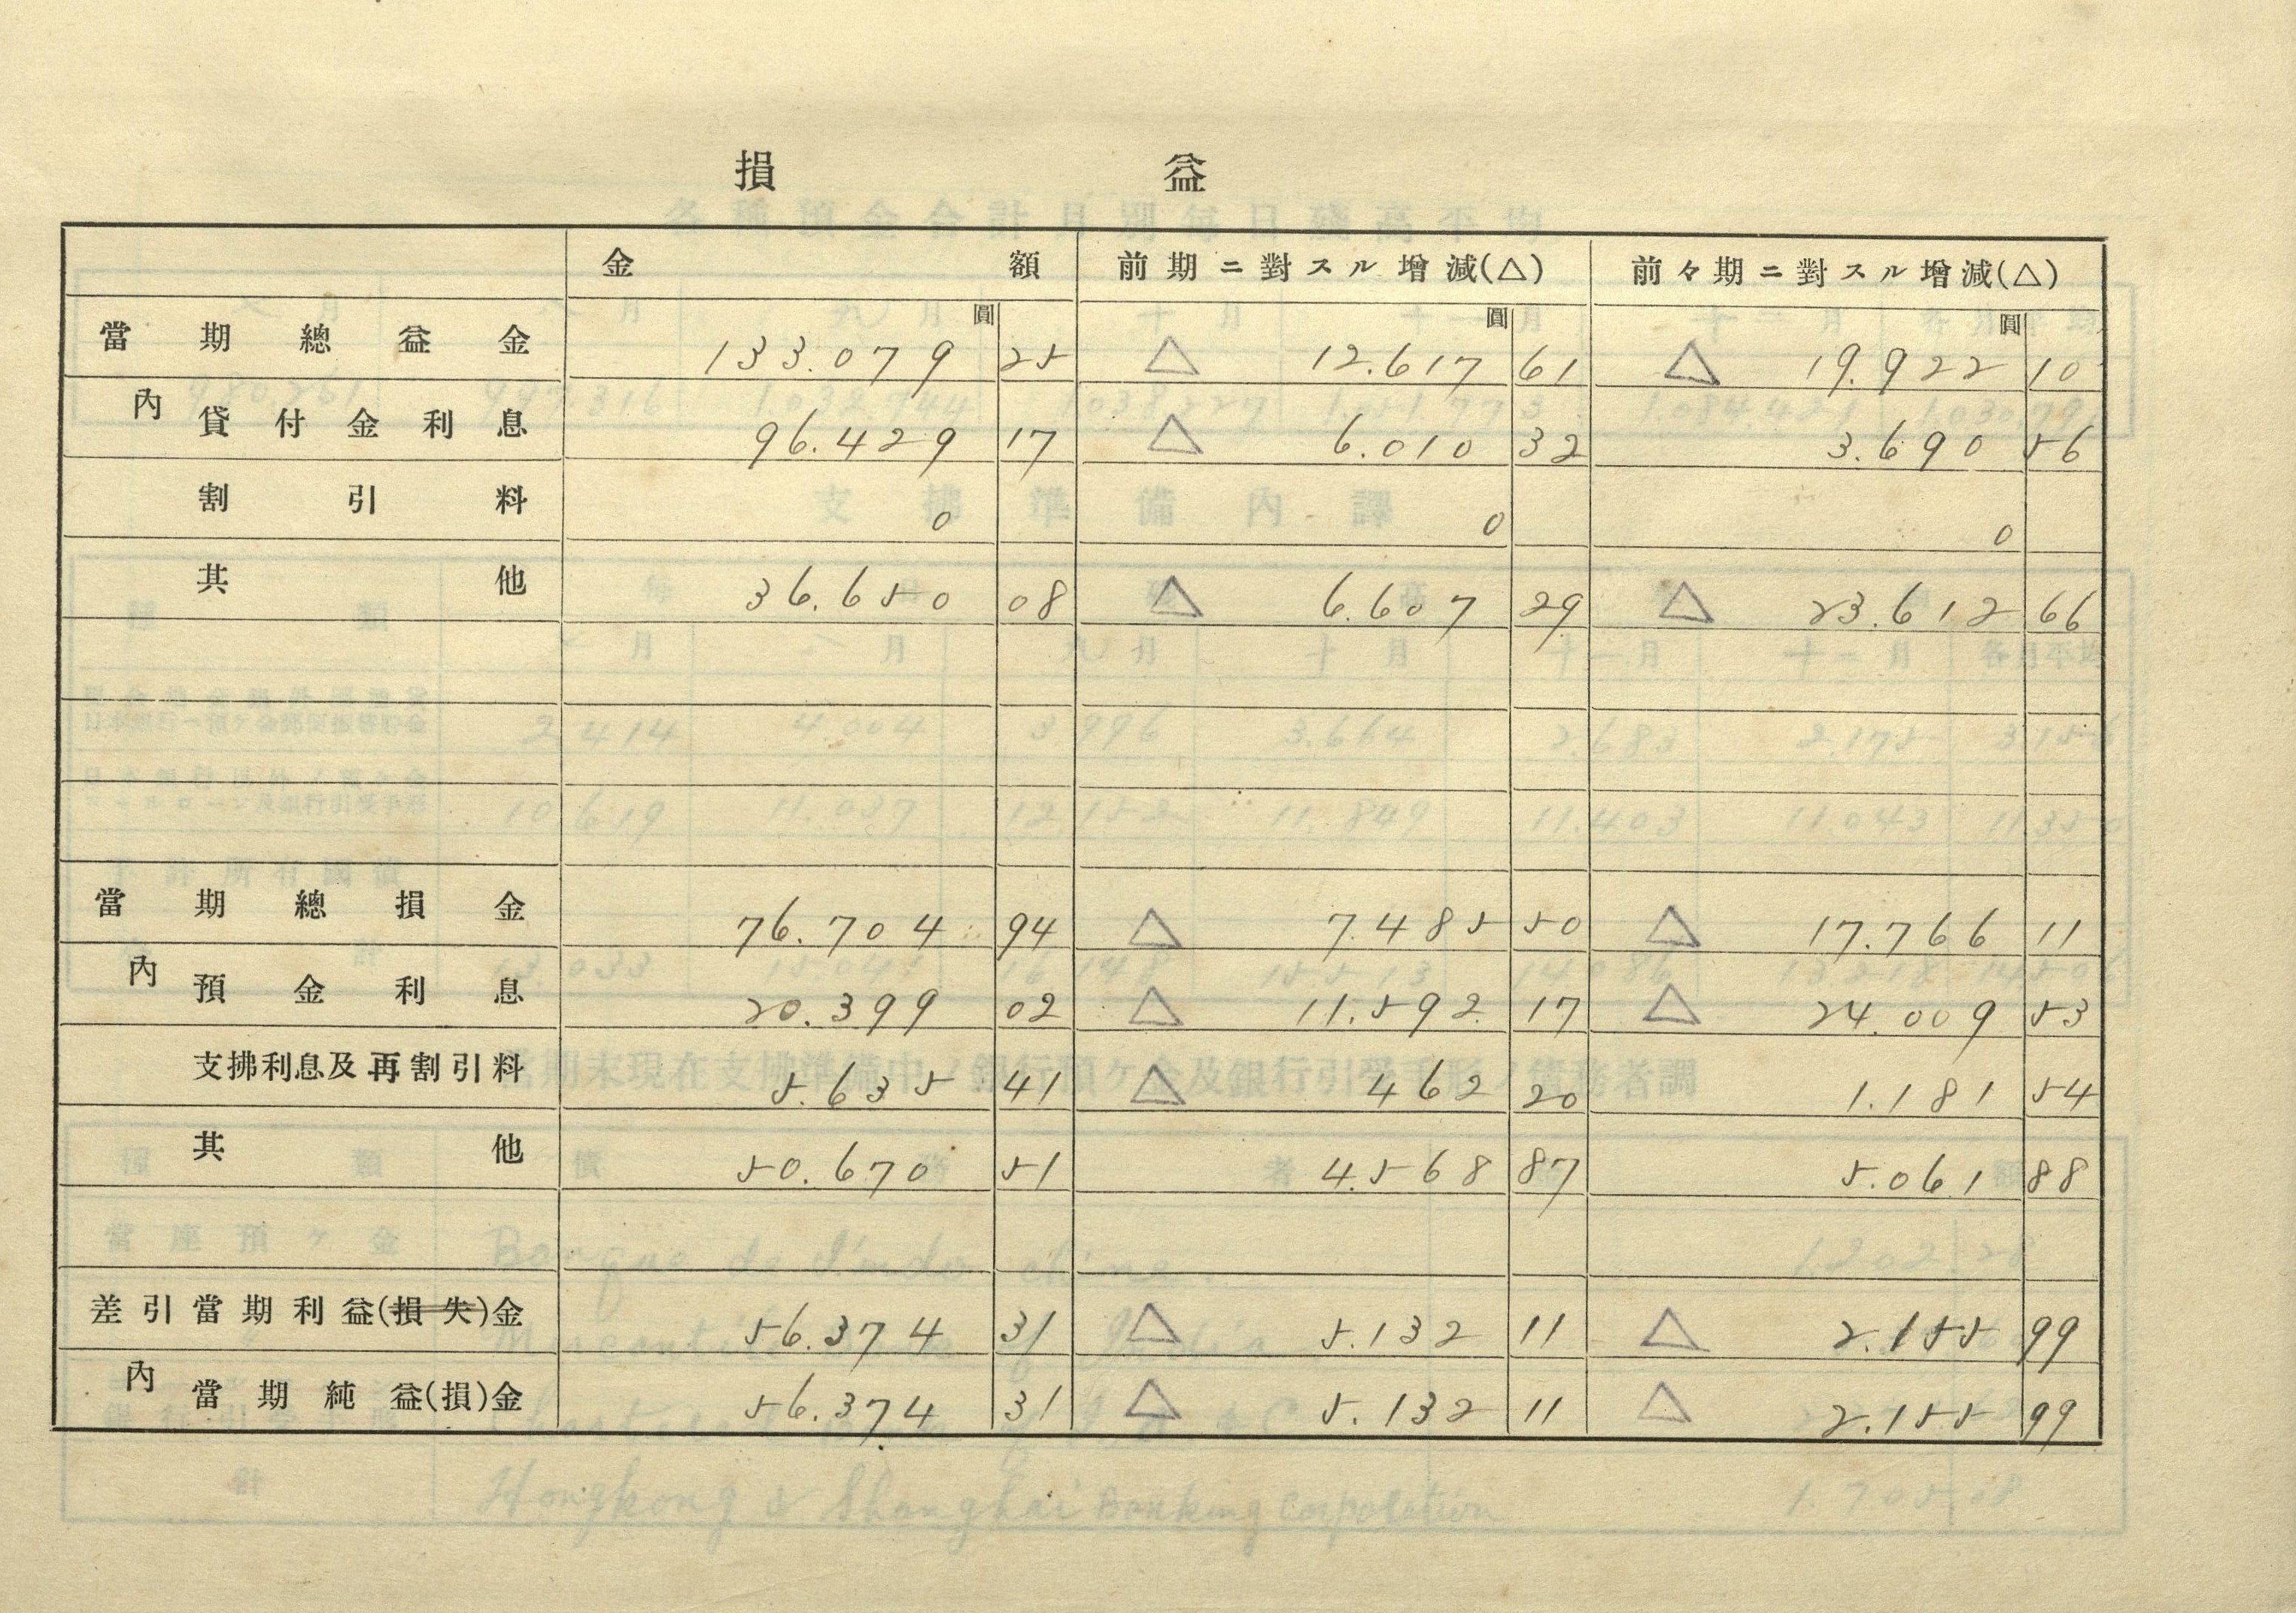 損 益
金 額 前期ニ對スル增減(△) 前々期ニ對スル增減(△)
圓 圓 圓
當期總益金 133.079 25 △ 12.617 61 △ 19.922 10
內 貸付金利息 96.429 17 △ 6.010 32 3.690 56
割引料 0 0 0
其他 36.650 08 △ 6.607 29 △ 23.612 66
當期總損金 76.704 94 △ 7.485 50 △ 17.766 11
內 預金利息 20.399 02 △ 11.592 17 △ 24.009 53
支拂利息及再割引料 5.635 41 △ 462 20 1.181 54
其他 50.670 51 4.568 87 5.061 88
差引當期利益(損失)金 56.374 31 △ 5.132 11 △ 2.155 99
內 當期純益(損)金 56.374 31 △ 5.132 11 △ 2.155 99